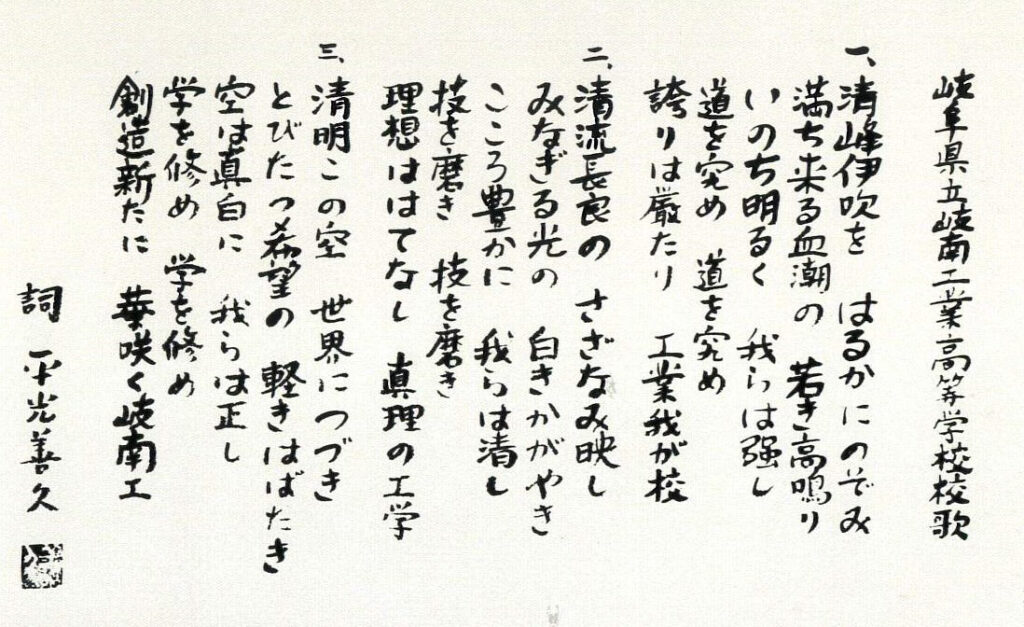 岐阜県立岐南工業高等学校校歌
一、清峰伊吹を　はるかにのぞみ
満ち来る血潮の　若き高鳴り
いのち明るく　我らは強し
道を究め　道を究め
誇りは厳たり　工業我が校
二、清流長良の　さざなみ映し
みなぎる光の　白きかがやき
こころ豊かに　我らは清し
技を磨き　技を磨き
理想ははてなし　真理の工学
三、清明この空　世界につづき
とびたつ希望の　軽きはばたき
空は真白に　我らは正し
学を修め　学を修め
創造新たに　華咲く岐南工
詞　平光善久